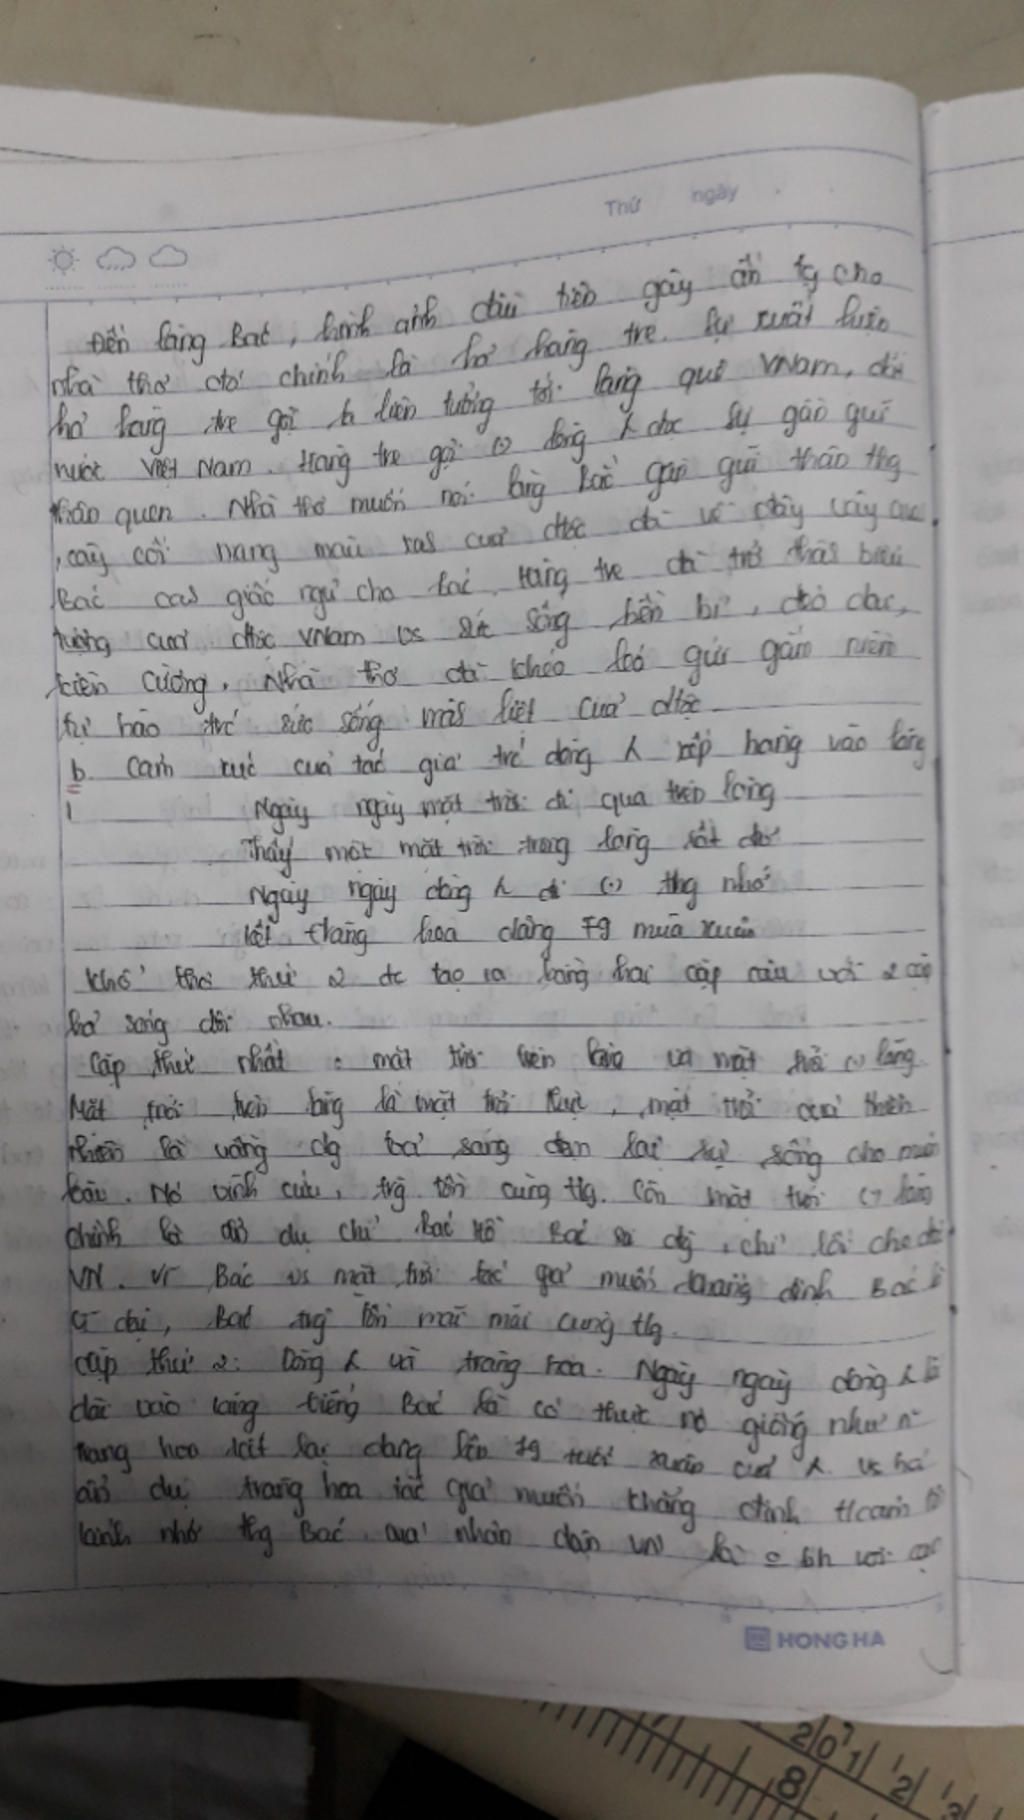 Thứ ngày
Đến lăng Bác, hình ảnh đầu tiên gây ấn tg cho
nhà thơ đó chính là hà hàng tre. Sự xuất hiện
hà hàng tre gợi ta liên tưởng tới làng quê VNam, đất
nước Việt Nam. Hàng tre gợi (.) lòng đọc sự gần gũi
thân quen. Nhà thơ muốn nói lăng Bác gần gũi thân thg
, cây cối mang màu sắc của dtộc đã về đây vây
Bác canh giấc ngủ cho Bác. Hàng tre đã trở thành biểu
tượng của dtộc VNam vs sức sống bền bỉ,
kiên cường. Nhà thơ đã khéo léo gửi gắm niềm
tự hào trc sức sống mãnh liệt của dtộc
b. Cảm xúc của tác giả trc dòng xếp hàng vào lăng
Ngày ngày mặt trời đi qua trên lăng
Thấy một mặt trời trong lăng rất đỏ
Ngày ngày dòng đi (.) thg nhớ
kết tràng hoa dâng 79 mùa xuân
khổ thơ thứ 2 đc tạo ra bằng hai cặp câu với 2 cặp
song đôi nhau.
Cặp thứ nhất : mặt trời trên lăng và mặt trời (.) lăng
Mặt trời trên lăng là mặt trời thực, mặt trời của thiên
nhiên là vầng dg toả sáng đem lại sự sống cho muôn
loài. Nó vĩnh cửu, trg tồn cùng tg. Còn mặt trời (.) lăng
chính là ẩn dụ chỉ Bác Hồ Bác soi đg, chỉ lối cho
VN. Ví Bác vs mặt trời tác giả muốn khẳng định Bác
vĩ đại, Bác trg tồn mãi mãi cùng tg.
cặp thứ 2: Dòng và tràng hoa. Ngày ngày dòng
dài vào lăng viếng Bác là có thực nó giống như
tràng hoa kết lại dâng lên 79 tuổi xuân của vs
ẩn dụ tràng hoa tác giả muốn khẳng định tcảm
nhớ thg Bác của nhân dân VN là với
HONG HA
2 0 1 2 3
8